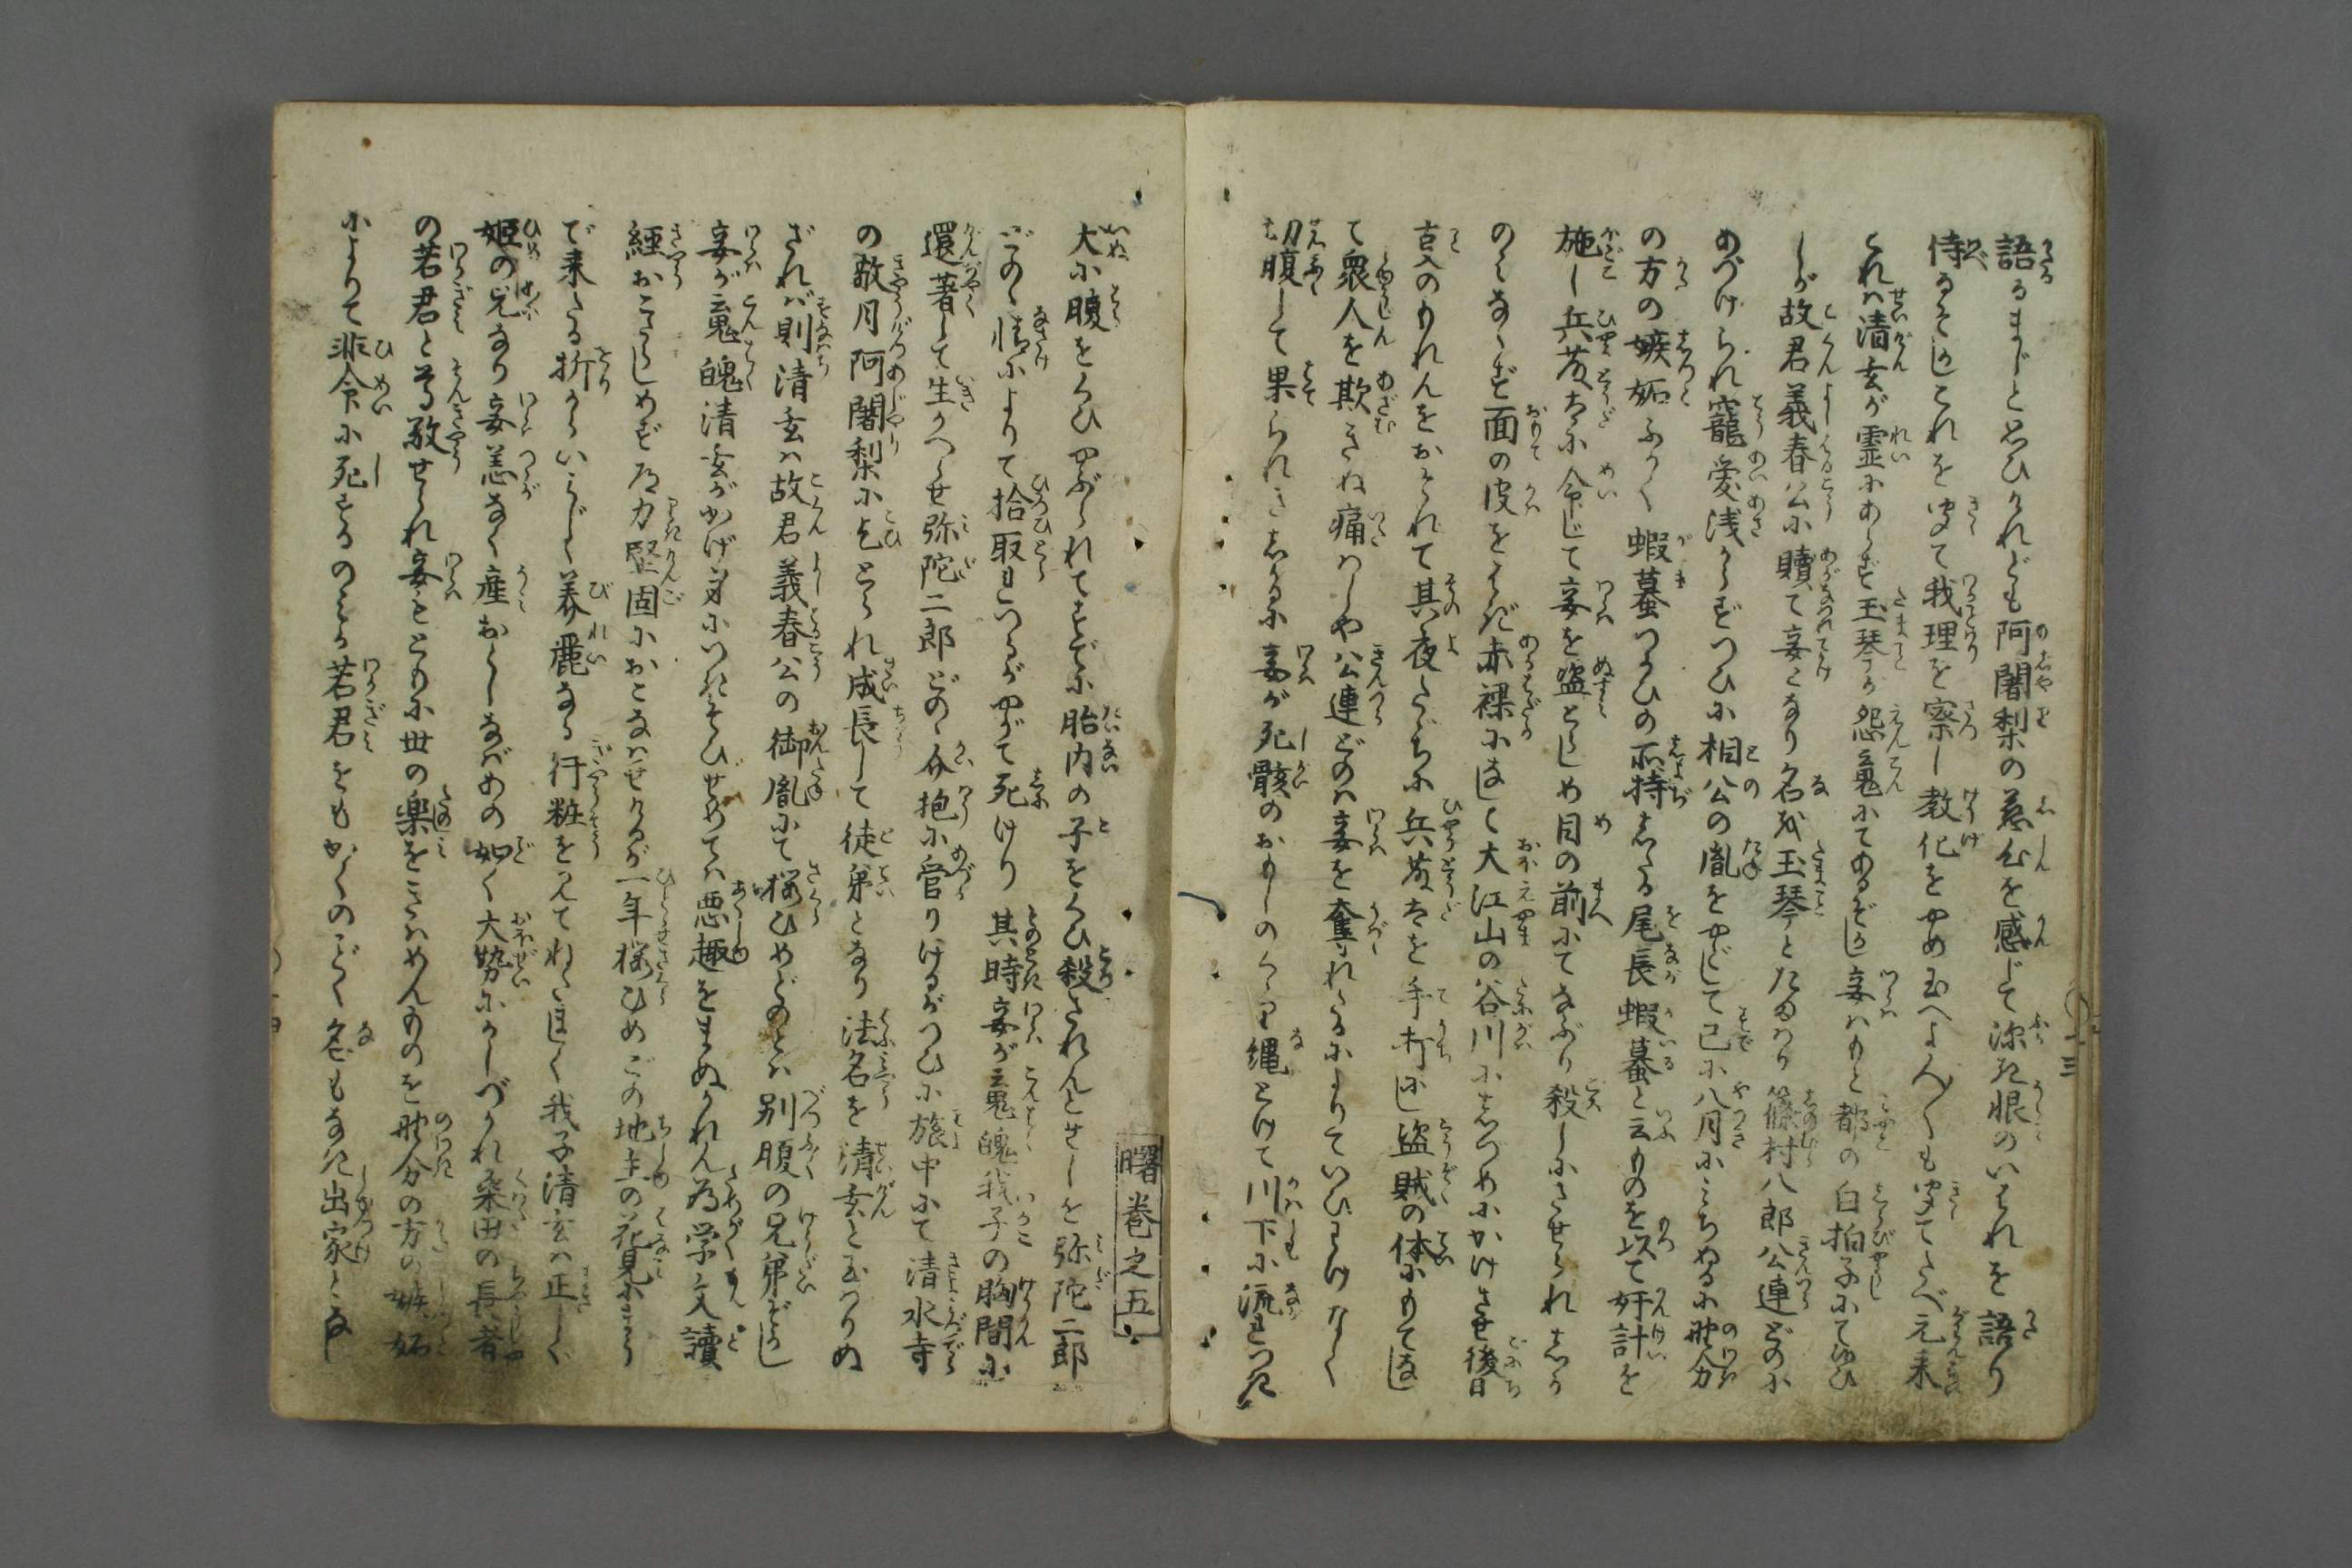 語るまじと思ひかれども阿闍梨の慈心を感じて深き恨のいはれを語り
侍るぞかしこれを聞て我理を察し教化をやめ玉へよ人〱も聞てたべ元来
これは清玄が霊にあらず玉琴が怨鬼にてあるぞかし妾はもと都の白拍子にて候ひ
しが故君義春公に贖て妾となり名を玉琴とたまはり篠村八郎公連どのに
あづけられ寵愛浅からずつひに相公の胤をやどして已に八月にみちぬるに野分
の方の嫉妬ふかく蝦蟇つかひの所持したる尾長蝦蟇と云ものを以て奸計を
施し兵藤太に命じて妾を盗とらしめ目の前にてなぶり殺しにさせられしか
のみならず面の皮をはぎ赤裸になして大江山の谷川にしづめにかけさせ後日
言のもれんをおそれて其夜たゞちに兵藤太を手打にし盗賊の体にもてなし
て衆人を欺きぬ痛はしや公連どのは妾を奪れたるによりていひわけなく
切腹して果られきしかるに妾が死骸のおもしのくゝり縄とけて川下に流れつき
十三
曙巻之五
犬に腹をくひやぶられてすでに胎内の子をくひ殺されんとせしを弥陀二郎
どのゝ情によりて拾取れつるがやがて死けり其時妾が魂魄我子の胸間に
還著して生かへらせ弥陀二郎どのゝ介抱に管りけるがつひに旅中にて清水寺
の敬月阿闍梨に乞とられ成長して徒弟となり法名を清玄と玉はりぬ
ざれば則清玄は故君義春公の御胤にて桜ひめどのとは別腹の兄弟ぞかし
妾が魂魄清玄がかげ身につきそひせめては悪趣をまぬかれん為学文読
経おこたらしめず道力堅固におこなはせけるが一年桜ひめこの地主の花見にまう
で来たる折からいみじく美麗なる行粧を見てねたましく我子清玄は正しく
姫の兄なり妾恙なく産おとしなばあの如く大勢にかしづかれ桑田の長者
の若君と尊敬せられ妾もともに世の楽をきはめんものを野分の方の嫉妬
によりて非命に死するのみか若君をもかくのごとく名もなき出家となし